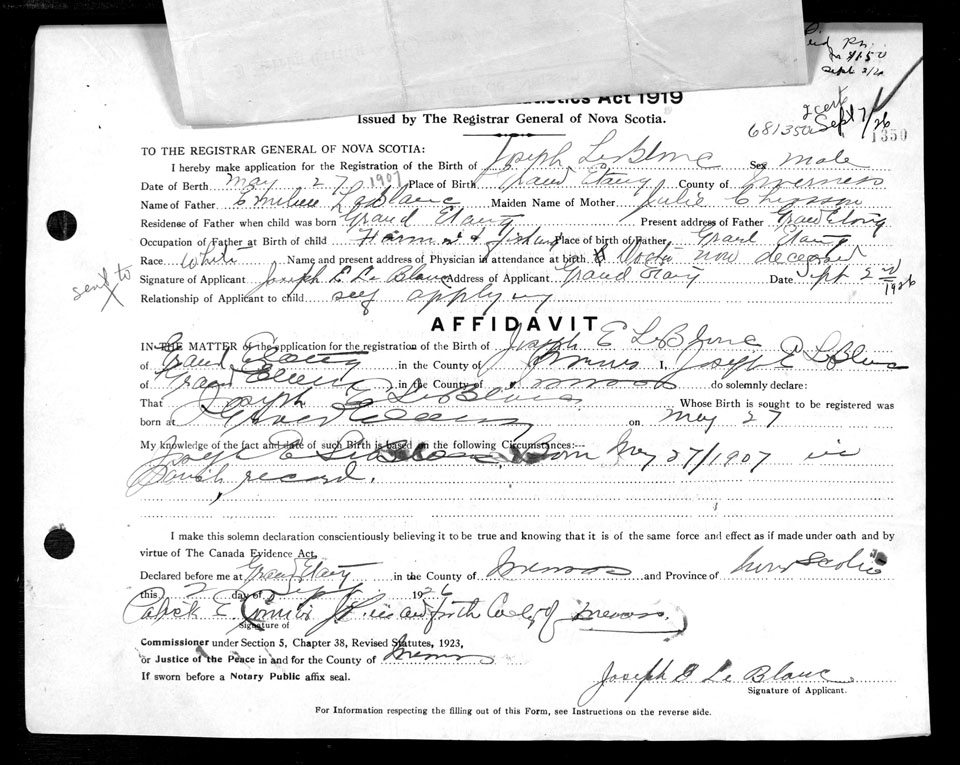 Pn.
Sept 3/26
Statistics Act 1919
Issued by The Registrar General of Nova Scotia.
2 cert
681350 Sept 7/26
1350
TO THE REGISTRAR GENERAL OF NOVA SCOTIA:
I hereby make application for the Registration of the Birth of Joseph LeBlanc Sex Male
Date of Berth May 27 1907 Place of Birth Grand Etang County of Inverness
Name of Father LeBlanc Maiden Name of Mother Julie Chiasson
Residenec of Father when child was born Grand Etang Present address of Father Grand Etang
Occupation of Father at Birth of child Farming & Fishing Place of birth of Father Grand Etang
Race White Name and present address of Physician in attendance at birth Doctor now deceased
send to
Signature of Applicant Joseph E Le Blanc Address of Applicant Grand Etang Date Sept 2nd 1926
Relationship of Applicant to child self applying
AFFIDAVIT
IN THE MATTER of the application for the registration of the Birth of Joseph E LeBlanc
of Grand Etang in the County of Inverness I, Joseph E LeBlanc
of Grand Etang in the County of Inverness do solemnly declare:
That Joseph E LeBlanc Whose Birth is sought to be registered was
born at Grand Etang on May 27
My knowledge of the fact and date of such Birth is based on the following Circumstances:—
Joseph E LeBlanc Born May 27/1907 in
Parish record.
I make this solemn declaration conscientiously believing it to be true and knowing that it is of the same force and effect as if made under oath and by
virtue of The Canada Evidence Act,
Declared before me at Grand Etang in the County of Inverness and Province of Nova Scotia
this 2 day of Sept 1926
Patrick E in and for the County of Inverness.
Signature of
Commissioner under Section 5, Chapter 38, Revised Statutes, 1923,
or Justice of the Peace in and for the County of Inverness
If sworn before a Notary Public affix seal.
Joseph E Le Blanc
Signature of Applicant.
For Information respecting the filling out of this Form, see Instructions on the reverse side.